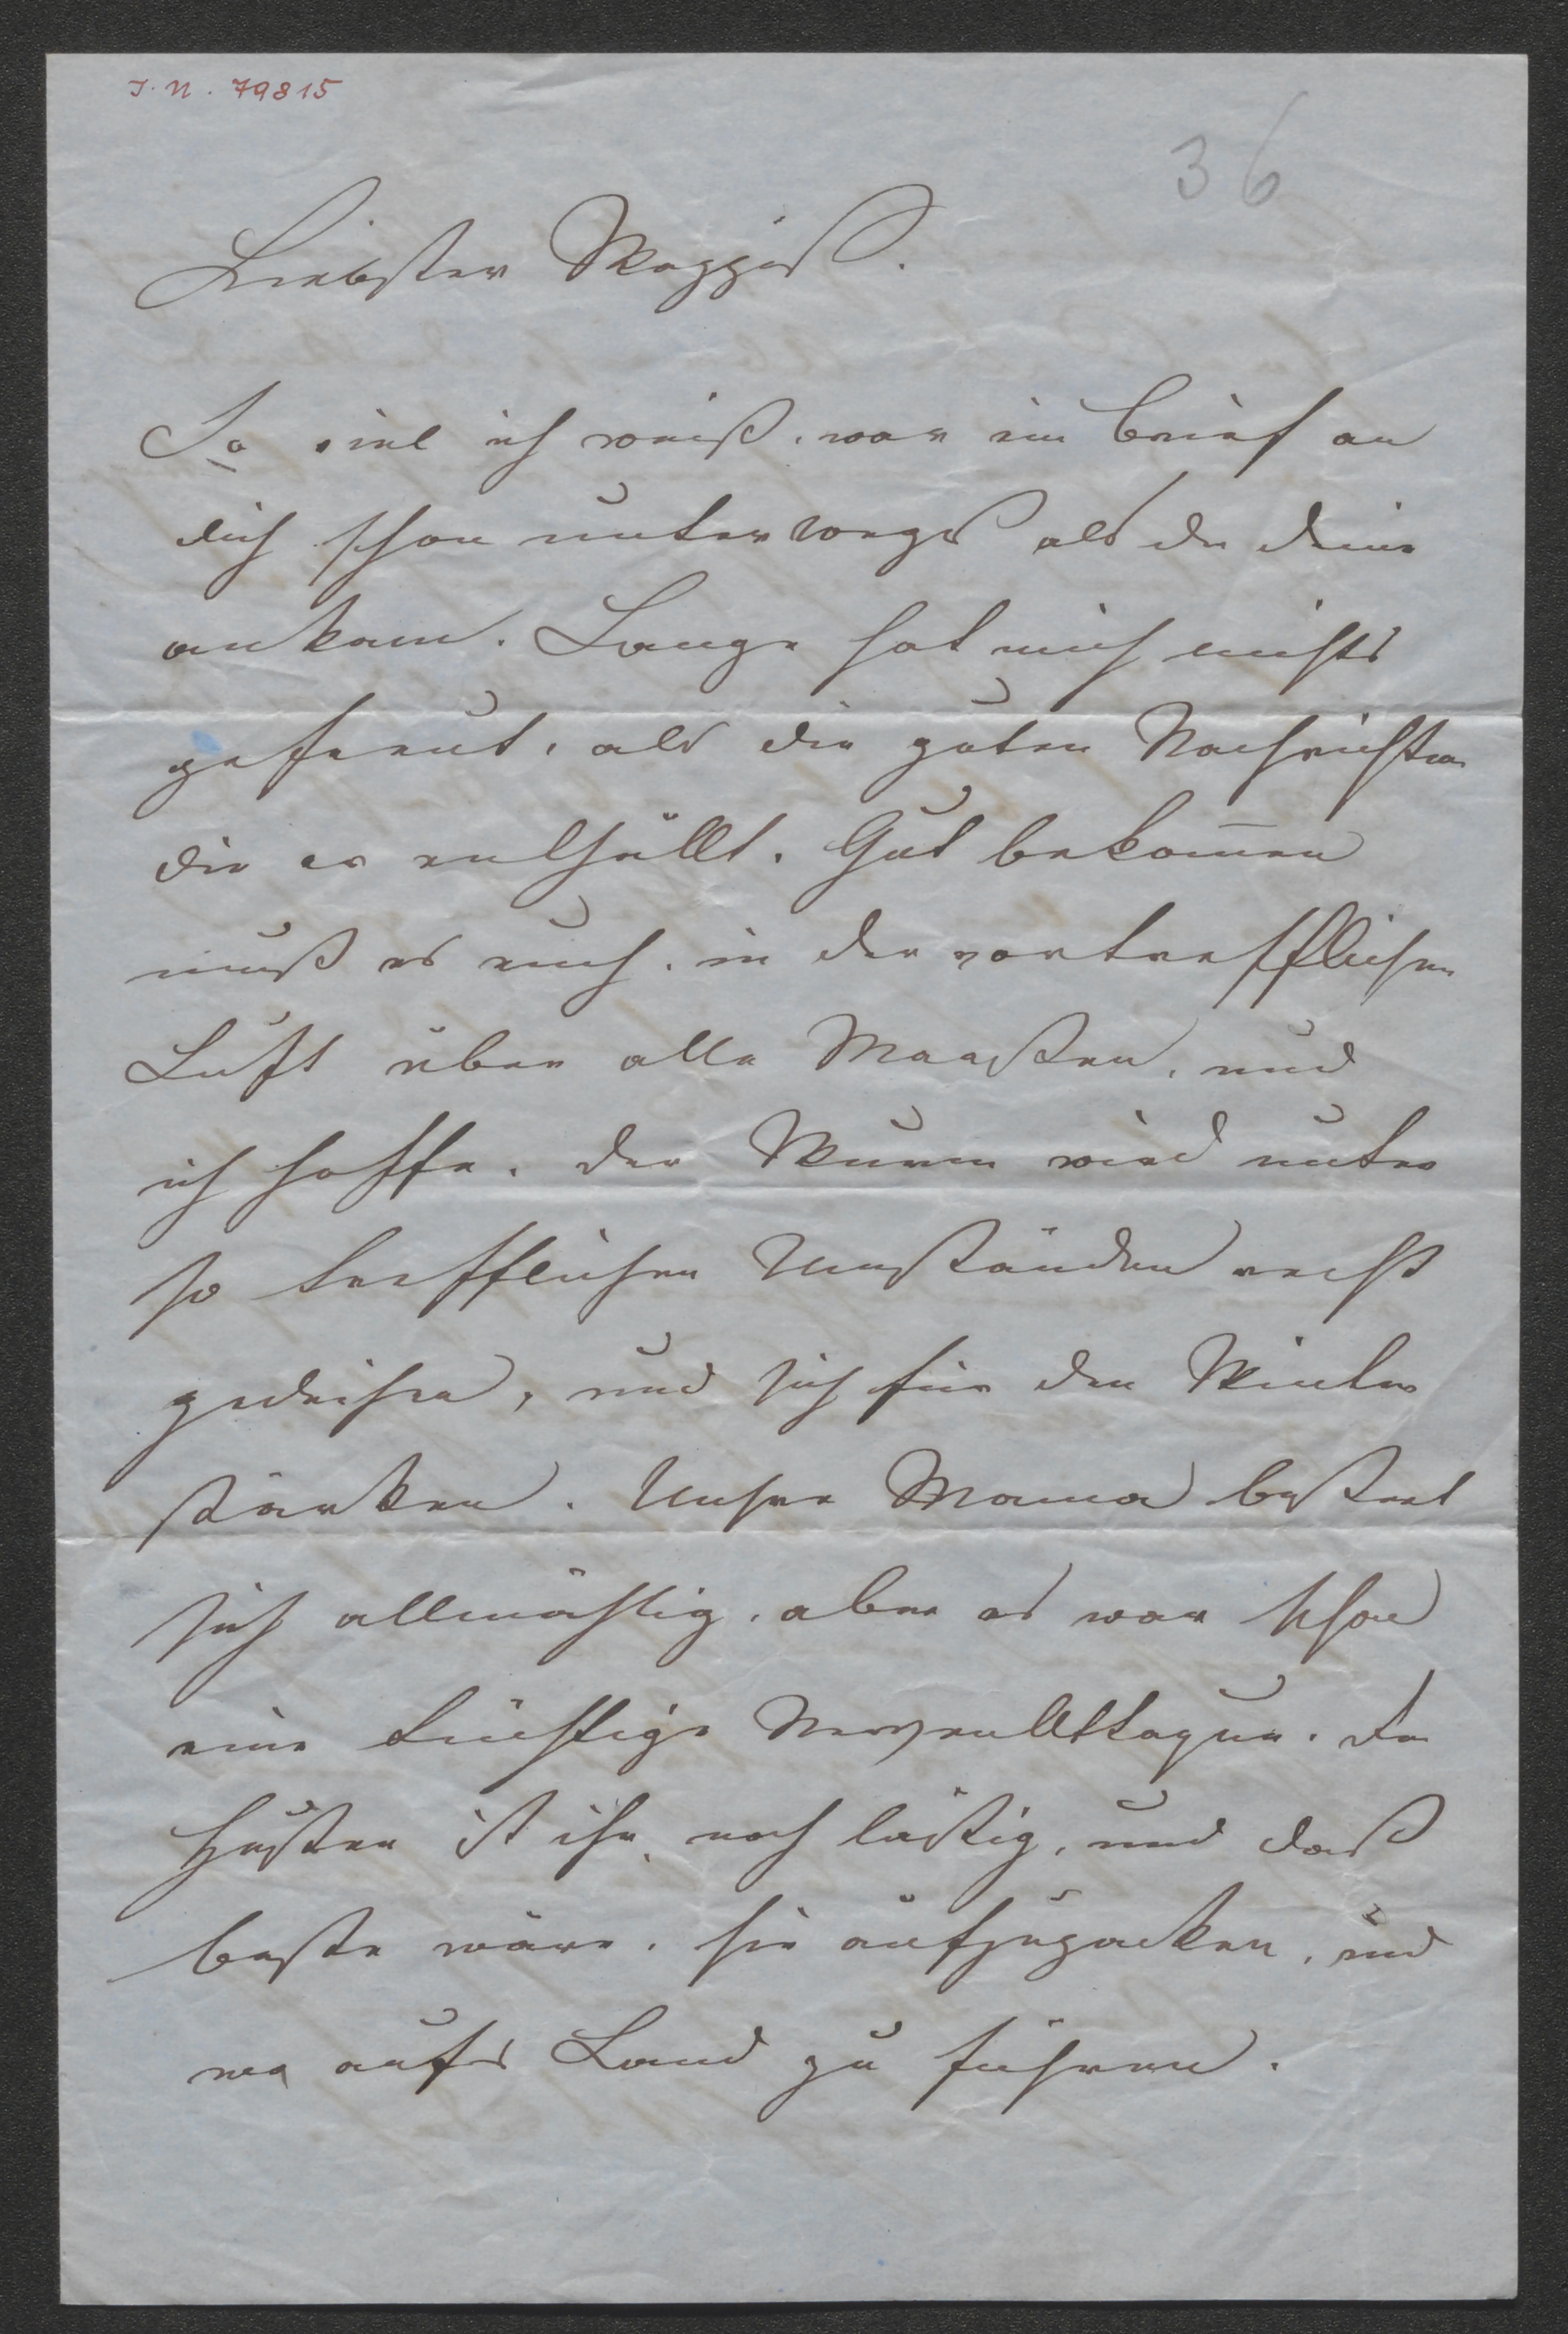 I. N. 79815
36
Liebster
So viel ich weiß, war ein Brief an
dich schon unterwegs als der deine
ankam. Lange hat mich nichts
gefreut, als die guten Nachrichten
die er enthällt. Gut bekom̅en
muß es euch, in der vortrefflichen
Luft über alle Maaßen, und
ich hoffe, der Wurm wird unter
so trefflichen Umständen recht
gedeihen, und sich für den Winter
stärken. Unsere Mama bessert
sich allmählig, aber es war schon
eine tüchtige NervenAttaque. Der
Husten ist ihr noch lästig, und daß
beste wäre, sie aufzupacken, und
wo aufs Land zu führen.